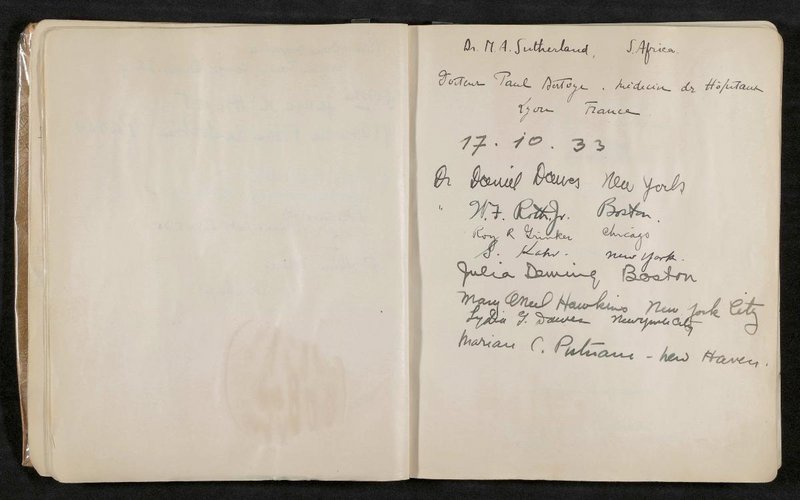 Dr. M. A. Sutherland, S. Africa.
Docteur Paul médecin des Hôpitaux
Lyon France
17. 10. 33
Dr Daniel Dawes New York
" W. F. Roth, Jr. Boston.
Roy R Grinker Chicago
S. Kahr. New York.
Julia Deming Boston
Mary O'Neil Hawkins New York City
Lydia G. Dawes New York City
Marian C. Putnam - New Haven.